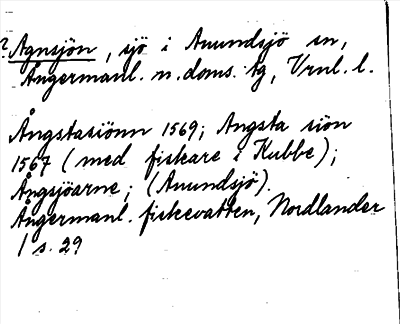 ? Agnsjön, sjö i Anundsjö sn,
Ångermanl. n. doms. tg, Vrnl. l.
Ångstasiönn 1569; Angsta siön
1567 (med fiskare i Kubbe);
Ångsjöarne; (Anundsjö).
Ångermanl. fiskevatten, Nordlander
1 s. 29